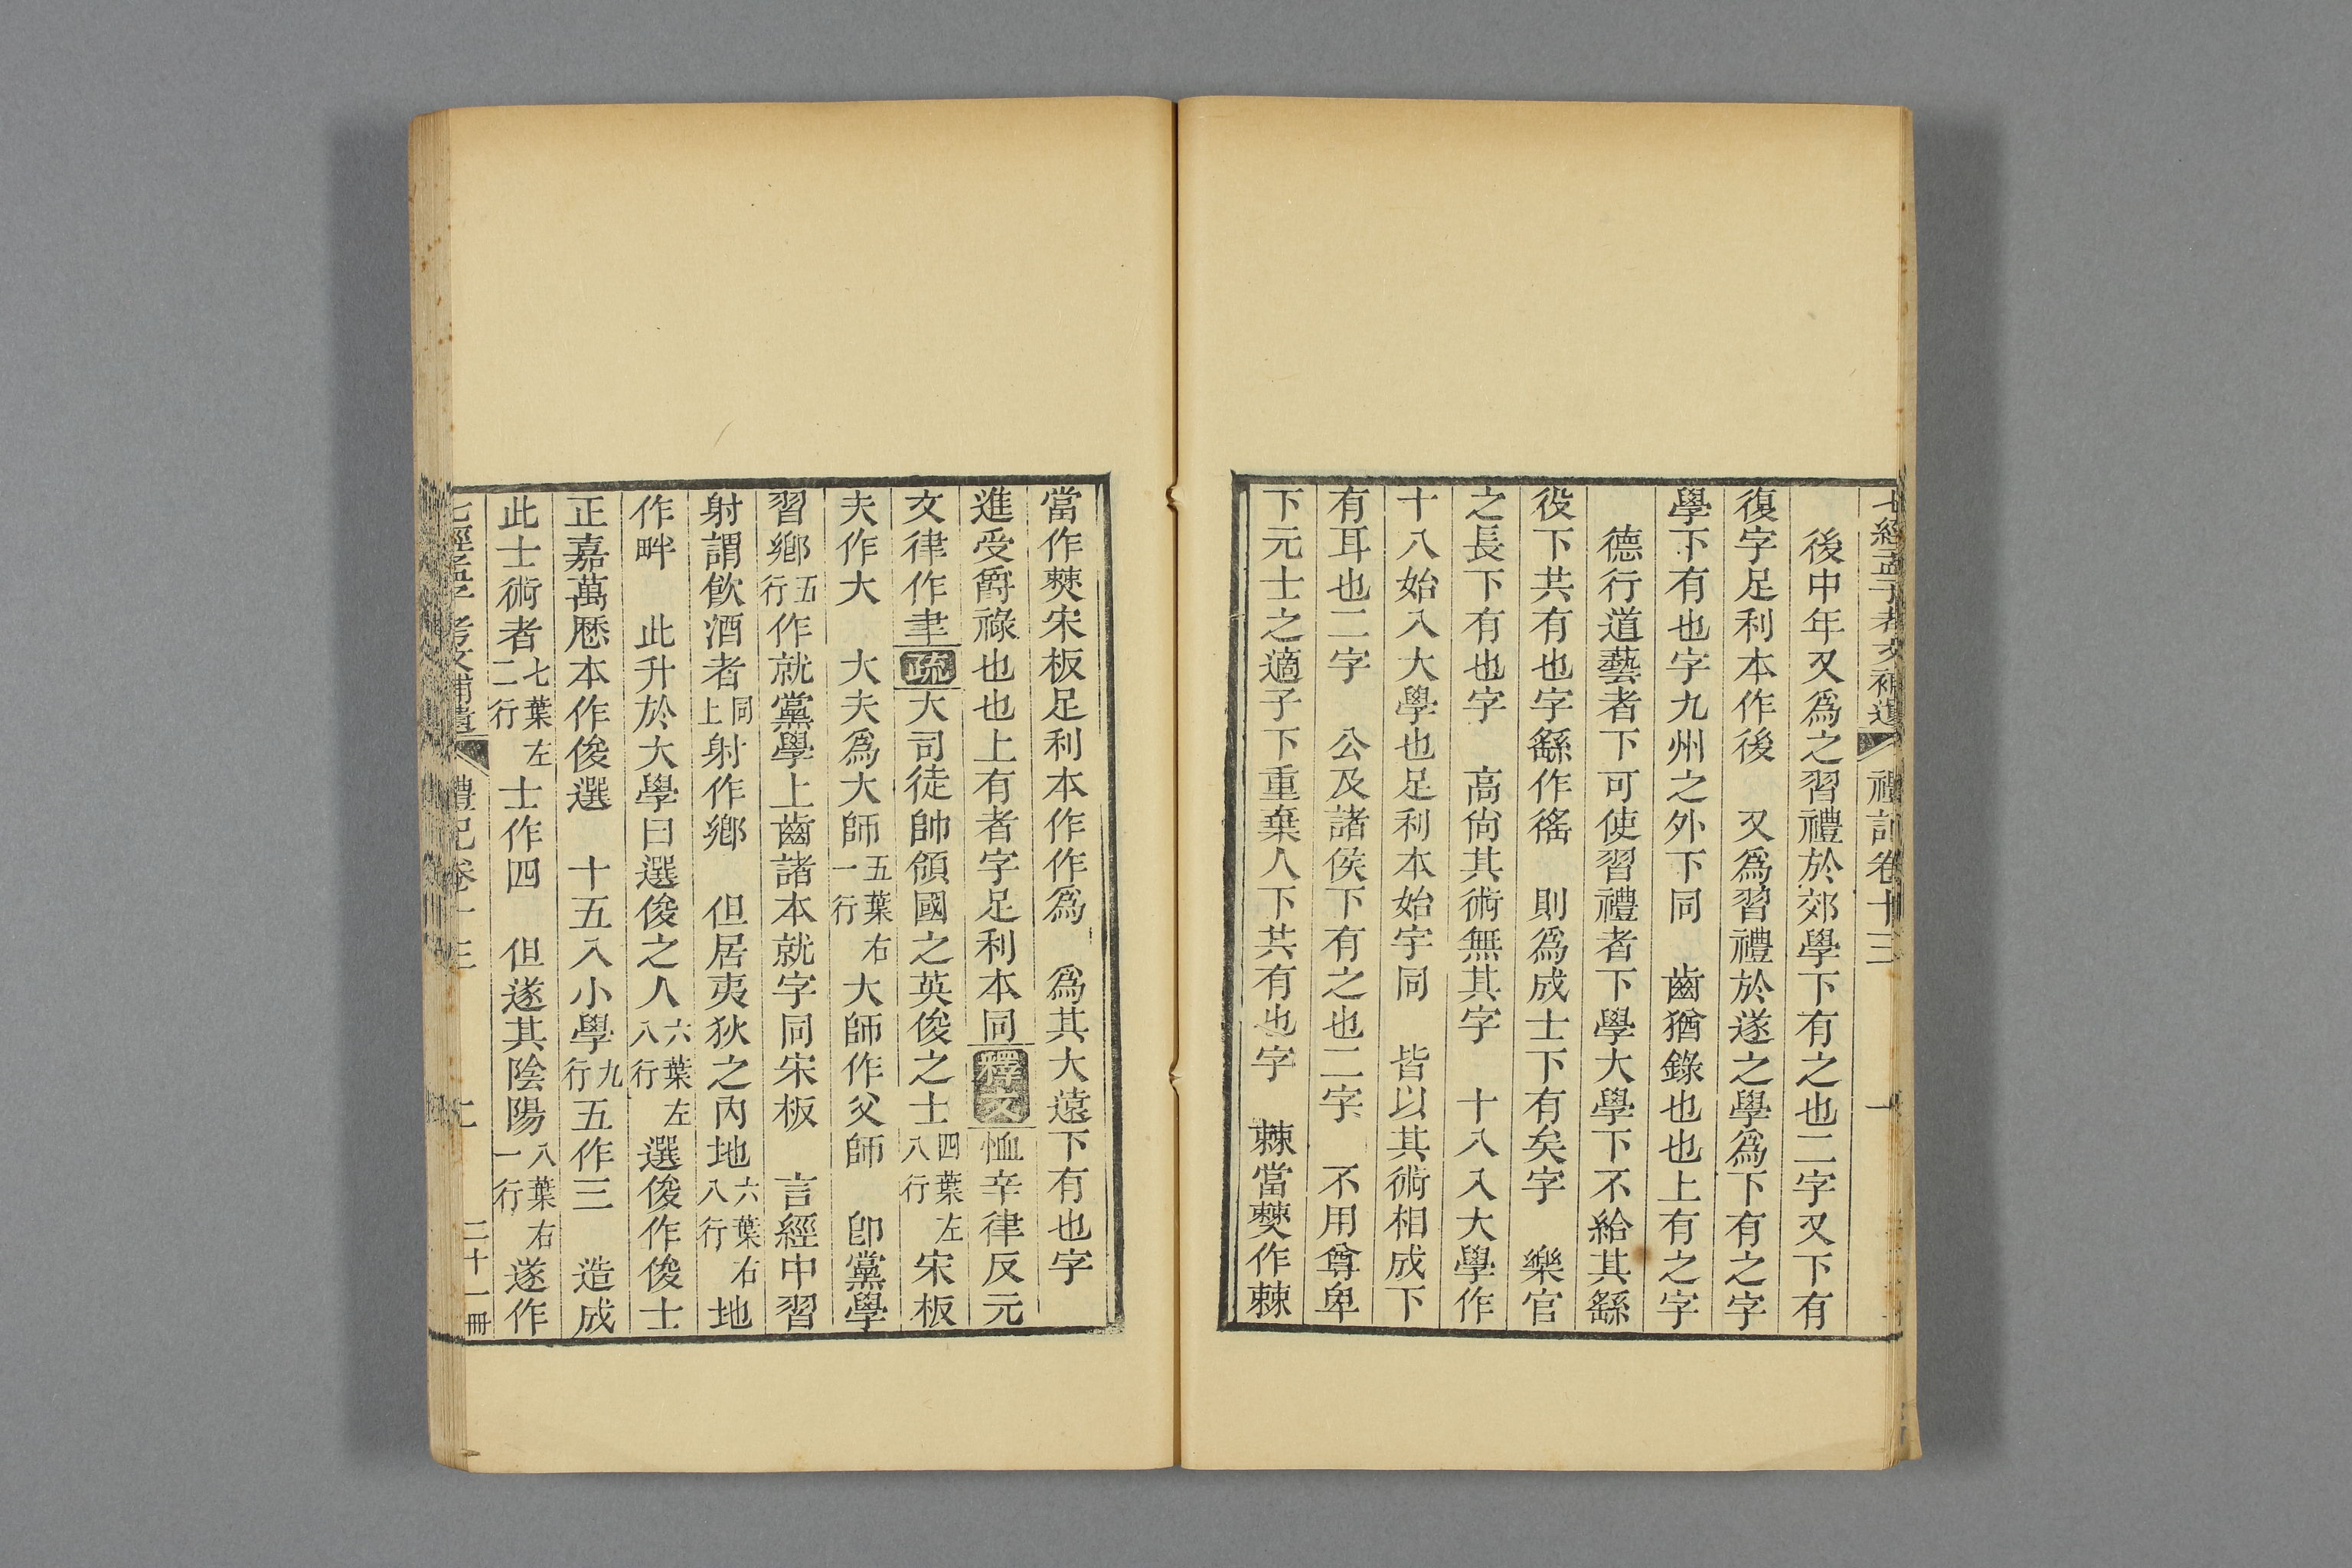 七經孟子考文補遺 禮記卷十三
後中年又爲之習禮於郊學下有之也二字又下有
復字足利本作後　又爲習禮於遂之學爲下有之字
學下有也字九州之外下同　齒猶錄也也上有之字
德行道藝者下可使習禮者下學大學下不給其繇
役下共有也字繇作徭　則爲成士下有矣字　樂官
之長下有也字　高尙其術無其字　十八入大學作
十八始入大學也足利本始字同　皆以其術相成下
有耳也二字　公及諸侯下有之也二字　不用尊卑
下元士之適子下重棄人下共有也字　棘當僰作棘
當作僰宋板足利本作作爲　爲其大遠下有也字
進受爵祿也也上有者字足利本同 釋文 恤辛律反元
文律作聿 疏 大司徒帥領國之英俊之士四葉左八行 宋板
夫作大　大夫爲大師五葉右一行 大師作父師　卽黨學
習鄉五行 作就黨學上齒諸本就字同宋板　言經中習
射謂飮酒者同上 射作鄉　但居夷狄之內地六葉右八行 地
作畔　此升於大學曰選俊之人六葉左八行 選俊作俊士
正嘉萬曆本作俊選　十五入小學九行 五作三　造成
此士術者七葉左二行 士作四　但遂其陰陽八葉右一行 遂作
七經孟子考文補遺 禮記卷十三 二十一冊